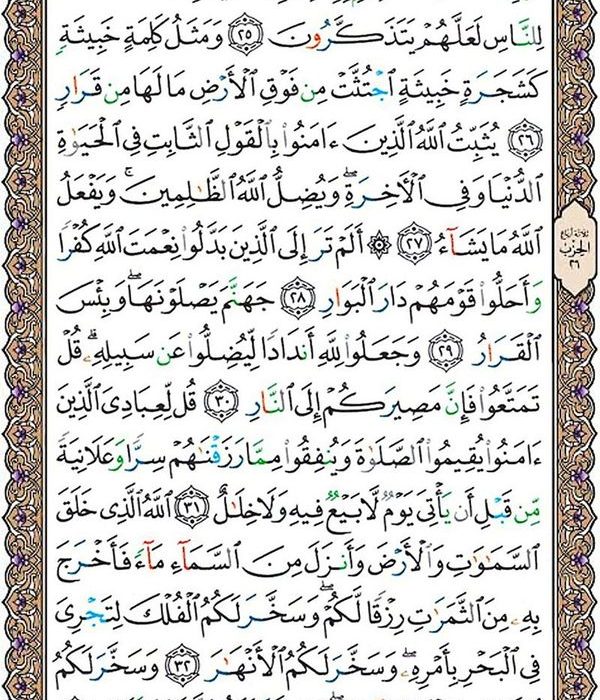 لِلنَّاسِ لَعَلَّهُمْ يَتَذَكَّرُونَ ﴿٢٥﴾ وَمَثَلُ كَلِمَةٍ خَبِيثَةٍ
كَشَجَرَةٍ خَبِيثَةٍ ٱجْتُثَّتْ مِن فَوْقِ ٱلْأَرْضِ مَا لَهَا مِن قَرَارٍ
﴿٢٦﴾ يُثَبِّتُ ٱللَّهُ ٱلَّذِينَ ءَامَنُوا۟ بِٱلْقَوْلِ ٱلثَّابِتِ فِي ٱلْحَيَوٰةِ
ٱلدُّنْيَا وَفِي ٱلْأَخِرَةِ ۖ وَيُضِلُّ ٱللَّهُ ٱلظَّٰلِمِينَ ۚ وَيَفْعَلُ
ٱللَّهُ مَا يَشَآءُ ﴿٢٧﴾ ۞ أَلَمْ تَرَ إِلَى ٱلَّذِينَ بَدَّلُوا۟ نِعْمَتَ ٱللَّهِ كُفْرًا
وَأَحَلُّوا۟ قَوْمَهُمْ دَارَ ٱلْبَوَارِ ﴿٢٨﴾ جَهَنَّمَ يَصْلَوْنَهَا ۖ وَبِئْسَ
ٱلْقَرَارُ ﴿٢٩﴾ وَجَعَلُوا۟ لِلَّهِ أَندَادًا لِّيُضِلُّوا۟ عَن سَبِيلِهِۦ ۗ قُلْ
تَمَتَّعُوا۟ فَإِنَّ مَصِيرَكُمْ إِلَى ٱلنَّارِ ﴿٣٠﴾ قُل لِّعِبَادِيَ ٱلَّذِينَ
ءَامَنُوا۟ يُقِيمُوا۟ ٱلصَّلَوٰةَ وَيُنفِقُوا۟ مِمَّا رَزَقْنَٰهُمْ سِرًّا وَعَلَانِيَةً
مِّن قَبْلِ أَن يَأْتِيَ يَوْمٌ لَّا بَيْعٌ فِيهِ وَلَا خِلَٰلٌ ﴿٣١﴾ ٱللَّهُ ٱلَّذِي خَلَقَ
ٱلسَّمَٰوَٰتِ وَٱلْأَرْضَ وَأَنزَلَ مِنَ ٱلسَّمَآءِ مَآءً فَأَخْرَجَ
بِهِۦ مِنَ ٱلثَّمَرَٰتِ رِزْقًا لَّكُمْ ۖ وَسَخَّرَ لَكُمُ ٱلْفُلْكَ لِتَجْرِيَ
فِي ٱلْبَحْرِ بِأَمْرِهِۦ ۖ وَسَخَّرَ لَكُمُ ٱلْأَنْهَٰرَ ﴿٣٢﴾ وَسَخَّرَ لَكُمُ
ثلاثة أرباع
الحزب
٢٦